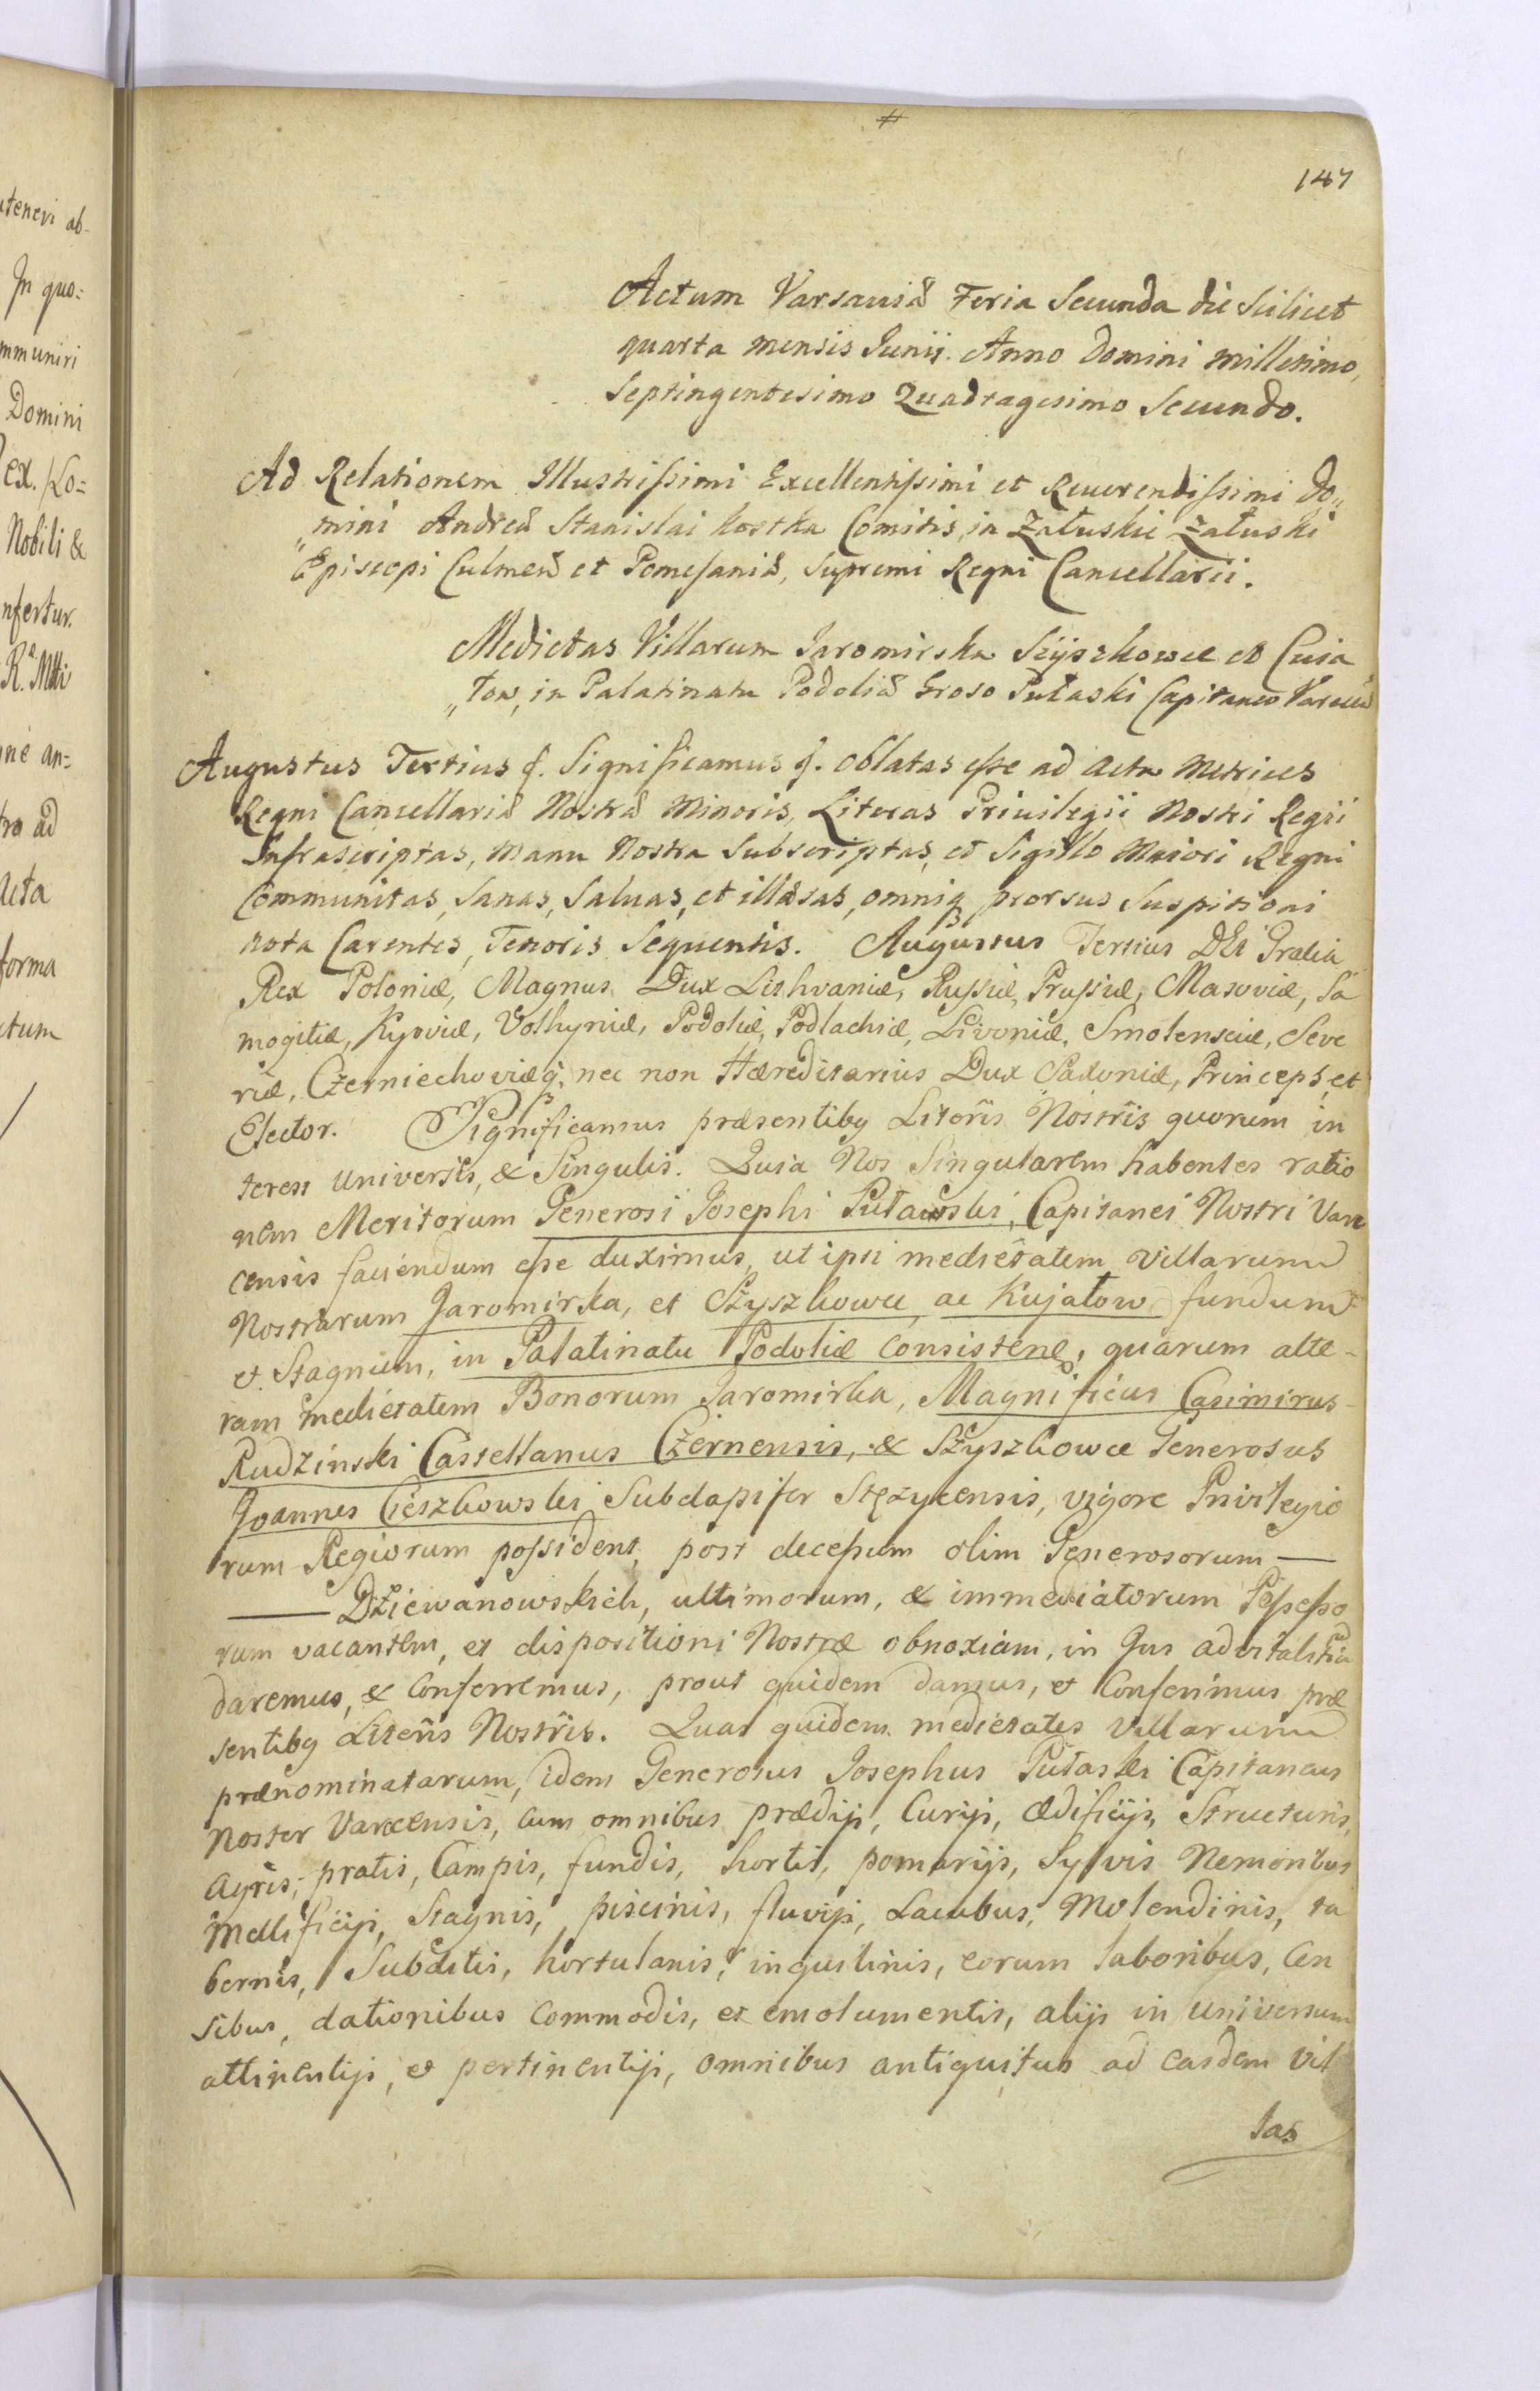 #
147
Actum Varsaviæ Feria Secunda die Scilicet
quarta mensis Junij. Anno Domini millesimo,
Septingentesimo Quadragesimo Secundo.
Ad Relationem Illustrissimi Excellentissimi et Reuerendissimi Do„
„mini Andreæ Stanislai Kostka Comitis in Załuskie Załuski
Episcopi Culmeñ et Pomesaniæ, Supremi Regni Cancellarii.
Medietas Villarum Jaromirska Szyszkowce et Cuia
„tow, in Palatinatu Podoliæ Groso Pułaski Capitaneo Varecen̄
Augustus Tertius &. Significamus &. Oblatas esse ad Acta Metrices
Regni Cancellariæ Nostræ Minoris, Literas Priuilegii Nostri Regii
Infrascriptas, manu Nostra Subscriptas, et Sigillo Maiori Regni
Communitas, Sanas, Saluas, et illæsas, omniq prorsus Suspitioni
nota Carentes, Tenoris Sequentis. Augustus Tertius DEI Gratia
Rex Poloniæ, Magnus Dux Lithvaniæ, Russiæ, Prussiæ, Masoviæ, Sa
mogitiæ, Kyoviæ, Volhyniæ, Podoliæ, Podlachiæ, Livoniæ, Smolensciæ, Seve
riæ, Czerniechoviæq; nec non Hæreditarius Dux Saxoniæ, Princeps, et
Elector. Significamus præsentibq Literis Nostris quorum in
terest universis, & Singulis. Quia Nos Singularem habentes ratio
nem Meritorum Generosi Josephi Puławski, Capitanei Nostri Vare
censis faciendum esse duximus, ut ipsi medietatem Villarum
Nostrarum Jaromirka, et Szyszkowce, ac Kujałow fundum
et Stagnum, in Palatinatu Podoliæ consistenē, quarum alte-
ram medietatem Bonorum Jaromirka, Magnificus Casimirus
Rudzinski Castellanus Czernensis, & Szyszkowce Generosus
Joannes Cieszkowski Subdapifer Stęzycensis, vigore Privilegio
rum Regiorum possident, post decessum olim Generosorum —
— Dziewanowskich, ultimorum, & immediatorum Possesso
rum vacantem, et dispositioni Nostræ obnoxiam, in Jus advitalitiū
daremus, & Conferremus, prout quidem damus, et Conferimus præ
sentibq Literis Nostris. Quas quidem medietates Villarum
prænominatarum, idem Generosus Josephus Pułaski Capitaneus
Noster Varecensis, cum omnibus prædijs, Curijs, Ædificijs, Structuris,
Agris, pratis, Campis, fundis, hortis, pomarijs, Sylvis Nemoribus
Mellificijs, Stagnis, piscinis, fluvijs, Lacubus, Molendinis, ta
bernis, Subditis, hortulanis, inquilinis, eorum laboribus, Cen
sibus, dationibus commodis, et emolumentis, alijs in universum
attinentijs, et pertinentijs, omnibus antiquitus ad easdem vil
las
uteneri ab-
In quo=
mmuniri
Domini
Lo=
Nobili &
nfertur.
né an=
tra ad
Acta
forma
ctum